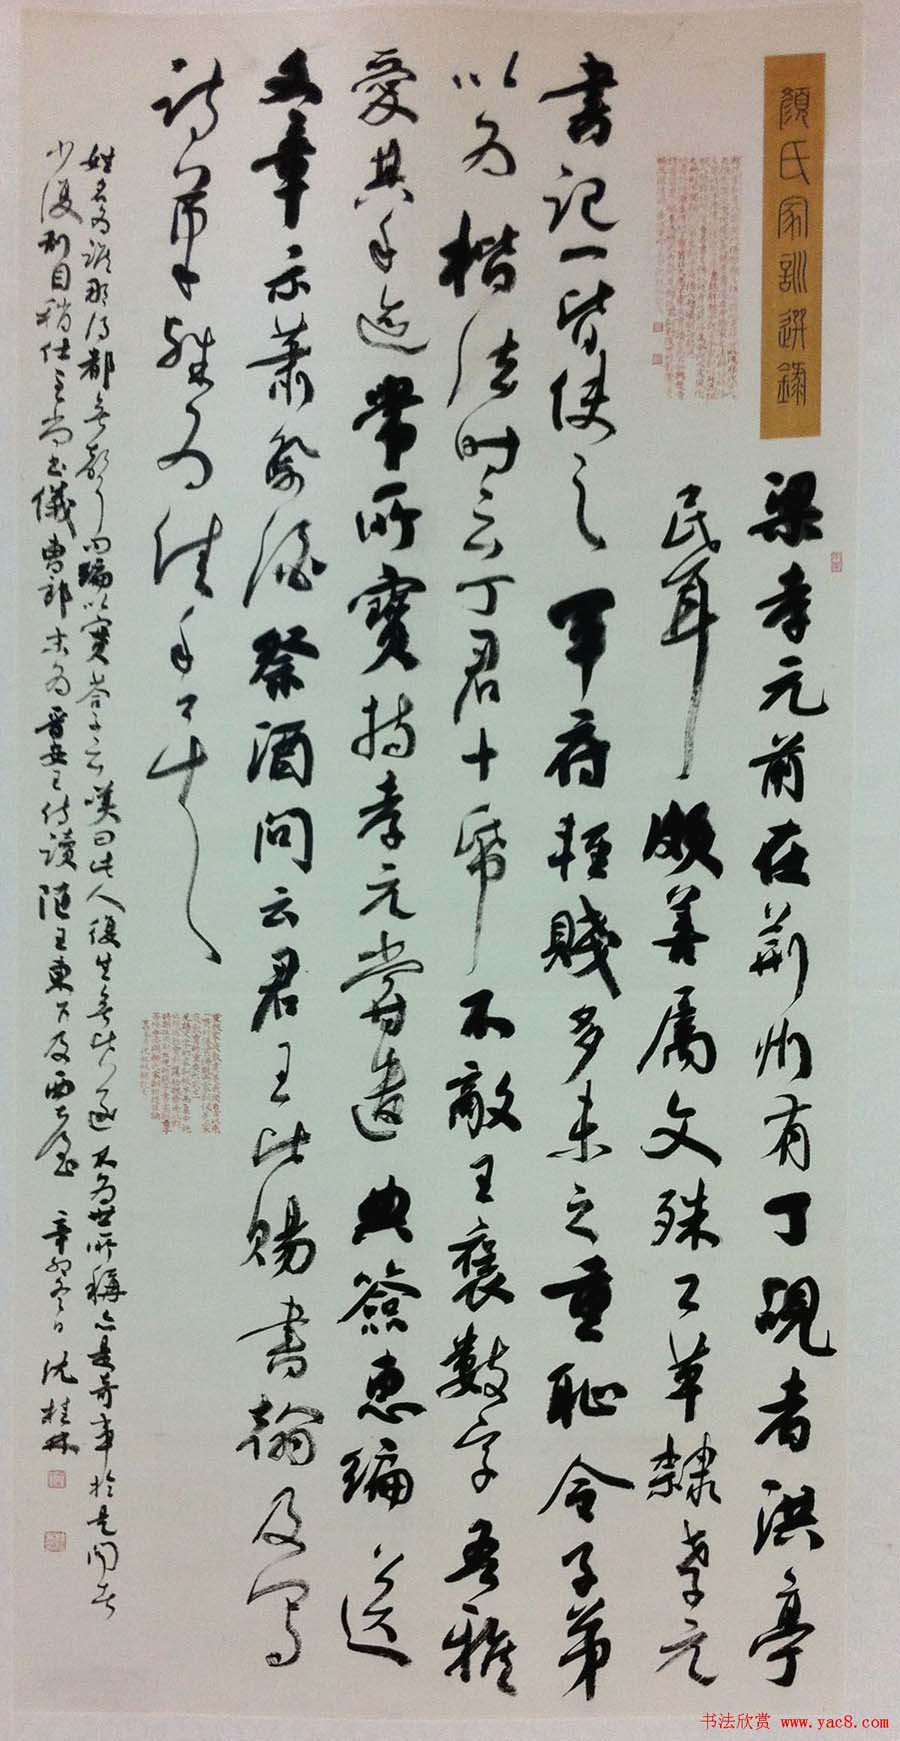 顏氏家訓選錄
梁孝元前在荊州有丁覘者洪亭
民耳頗善屬文殊工草隸孝元
書記一皆使之軍府輕賤多未之重恥令子弟
以為楷法時云丁君十紙不敵王褒數字吾雅
愛其手迹常所寶持孝元嘗遣典籤惠編送
文章示蕭祭酒祭酒問云君王比賜書翰及寫
詩筆殊為佳手
姓名為誰那得都無聲問編以實答子云嘆曰此人後生無比遂不為世所稱亦是奇事於是聞者
少復刮目稍仕至尚書儀曹郎末為晉安王侍讀隨王東下及西臺 辛卯冬日 沈桂林
书法欣赏 www.yac8.com